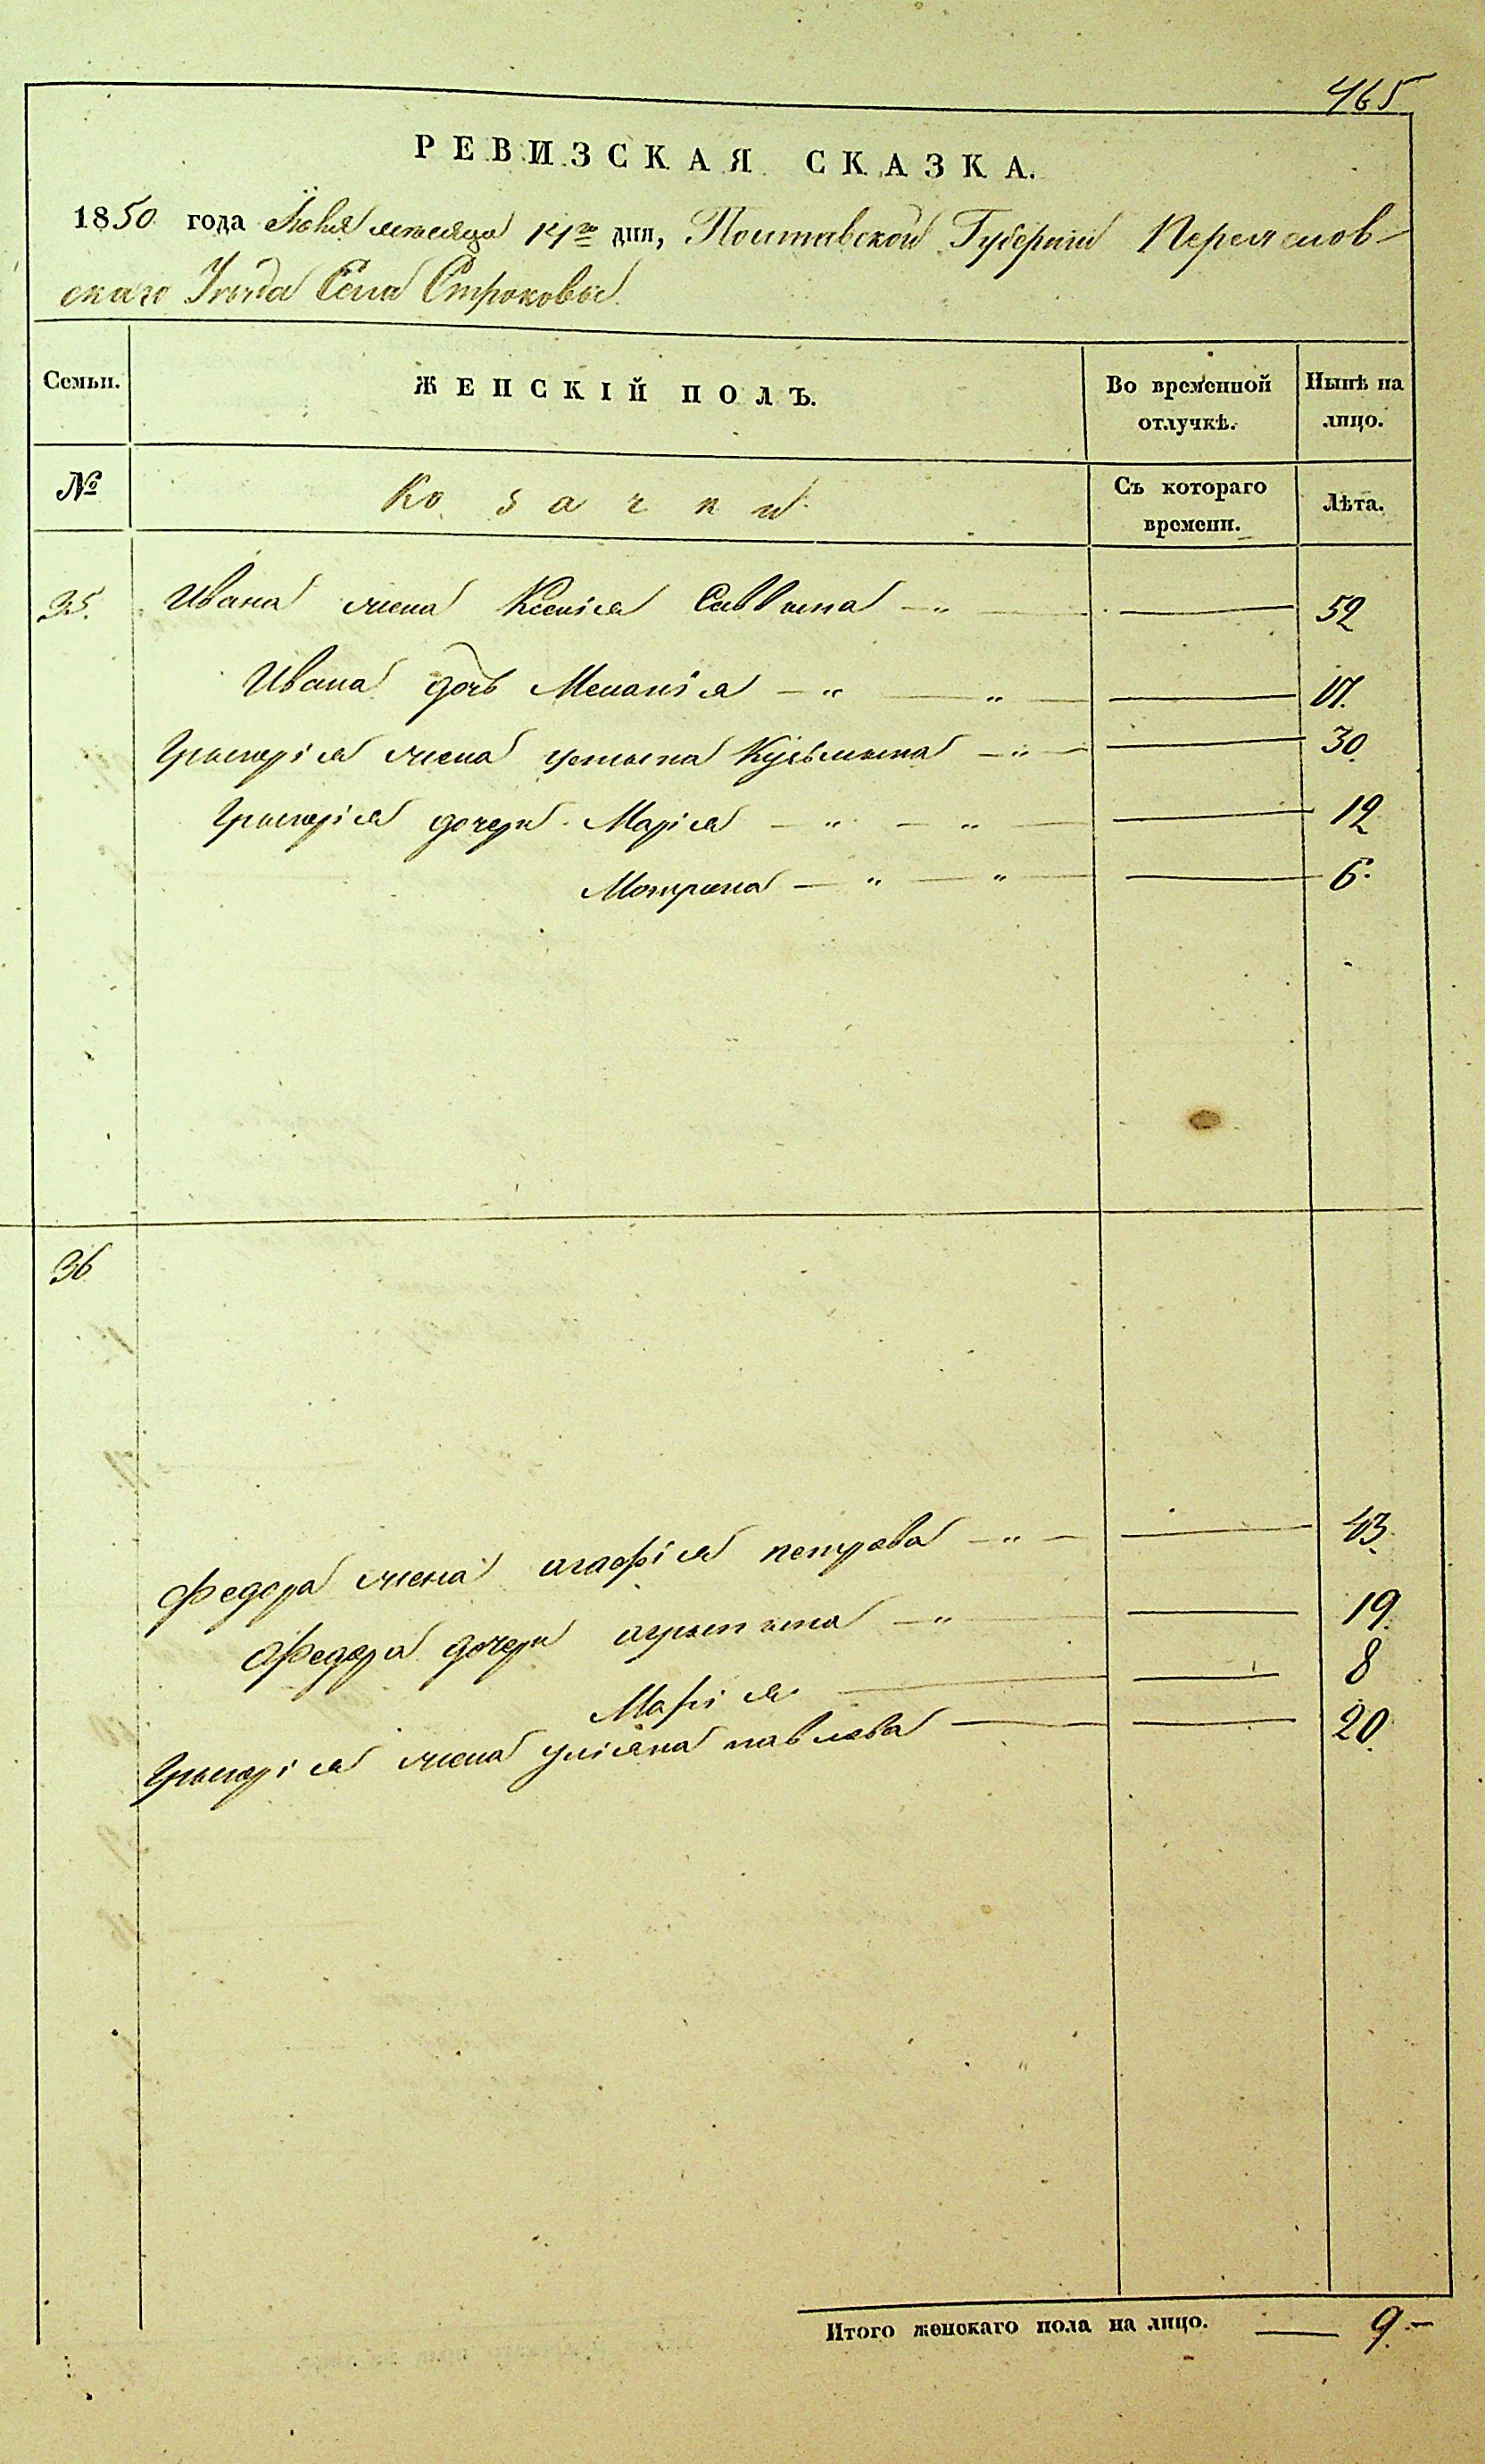 465
РЕВИЗСКАЯ СКАЗКА.
1850 года Июня месяца 14го дня, Полтавской Губернии Переяслов-
скаго Уезда Села Строковы
Семьи. ЖЕНСКІЙ ПОЛЪ. Во временной отлучкѣ. Нынѣ на лицо.
№ Козачки Съ котораго времени. Лѣта.
35. Ивана жена Ксенія Саввина — " — 52
Ивана дочь Меланія — " — " — 17.
Григорія жена Устина Кузьмина — " — 30
Григорія дочери Марія — " — " — 12
Мотрина — " — " — 6.
36
Федора жена Агафія петрова — " — 43.
Федора дочери агрипина — " — 19.
Марія — 8
Григорія жена уліяна павлова — 20.
Итого женскаго пола на лицо. — 9. —